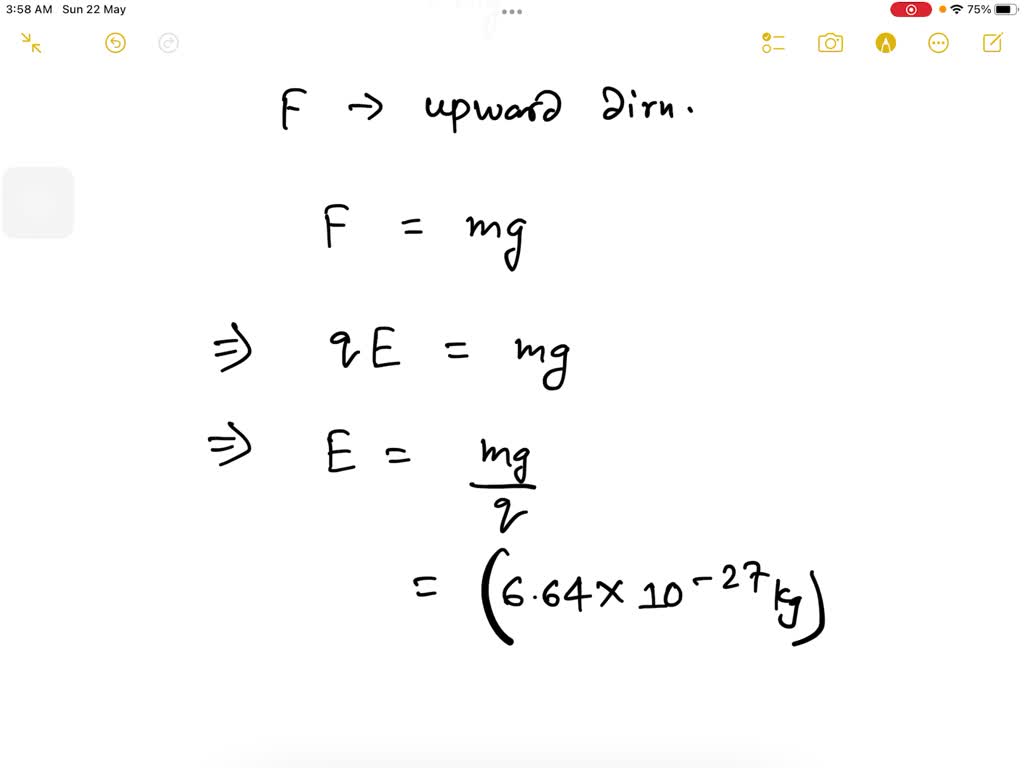 3:58 AM Sun 22 May
75%
F → upward dirn.
F = mg
⇒ qE = mg
⇒ E = mg/q
= (6.64 × 10^-27 kg)